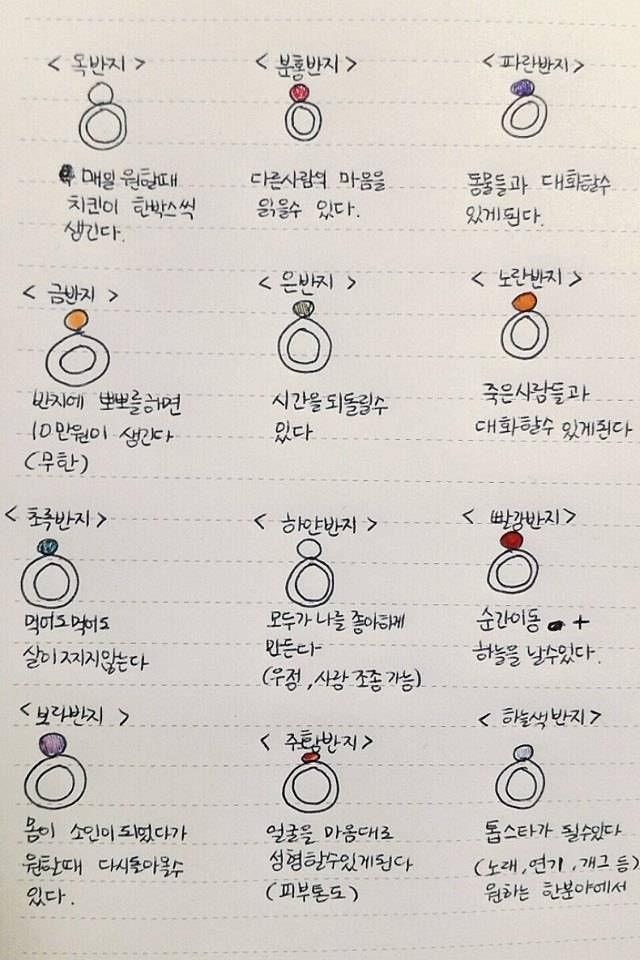 < 옥반지 >
매일 원할때
치킨이 한박스씩
생긴다.
< 분홍반지 >
다른사람의 마음을
읽을수 있다.
< 파란반지 >
동물들과 대화할수
있게된다.
< 금반지 >
반지에 뽀뽀를하면
10만원이 생긴다
(무한)
< 은반지 >
시간을되돌릴수
있다
< 노란반지 >
죽은사람들과
대화할수 있게된다
< 초록반지 >
먹어도먹어도
살이찌지않는다
< 하얀반지 >
모두가 나를 좋아하게
만든다
(우정, 사랑 조종가능)
< 빨강반지 >
순간이동 +
하늘을 날수있다.
< 보라반지 >
몸이 소인이되었다가
원할때 다시돌아올수
있다.
< 주황반지 >
얼굴을 마음대로
성형할수있게된다
(피부톤도)
< 하늘색반지 >
톱스타가 될수있다
(노래, 연기, 개그 등)
원하는 한분야에서